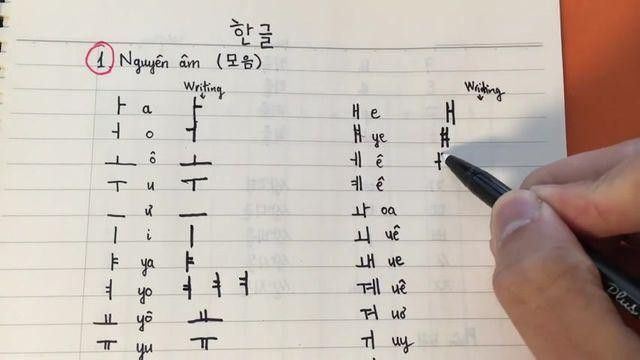 한글
1 Nguyên âm (모음)
Writing
Writing
ㅏ a ㅏ
ㅐ e ㅐ
ㅓ o ㅓ
ㅒ ye ㅒ
ㅗ ô ㅗ
ㅔ ê ㅓ
ㅜ u ㅜ
ㅖ ê
ㅡ ư ㅡ
ㅘ oa
ㅣ i ㅣ
ㅚ uê
ㅑ ya ㅑ
ㅙ ue
ㅕ yo ㅕ ㅕ ㅕ
ㅞ uê
ㅛ yô ㅛ
ㅝ uơ
ㅠ yu ㅠ
ㅟ uy
Plus